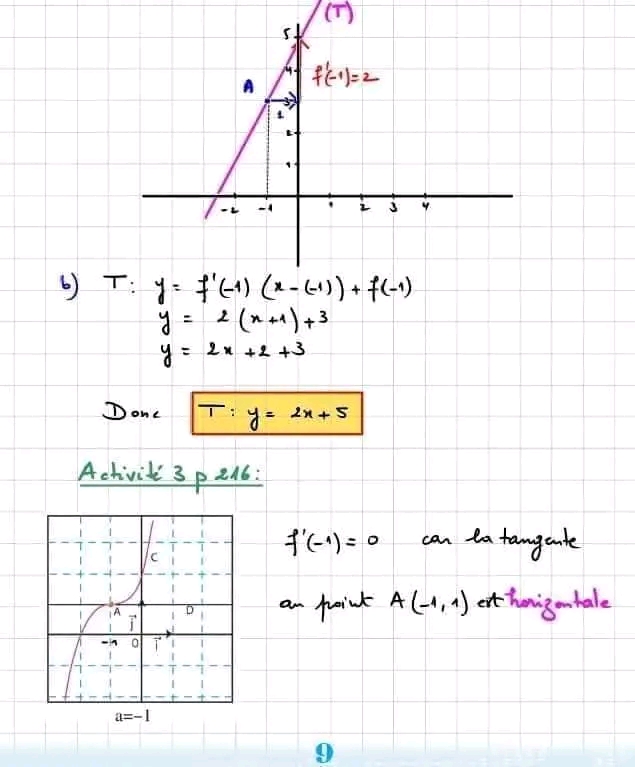 (T)
5
4
A
f'(-1)=2
3
1
2
1
-2 -1 1 2 3 4
b) T: y = f'(-1) (x-(-1)) + f(-1)
y = 2 (x+1) +3
y = 2x +2 +3
Donc T: y = 2x + 5
Activité 3 p 216:
C
f'(-1) = 0 car la tangente
A D
au point A(-1,1) est horizontale
j
-1 0 i
a=-1
9